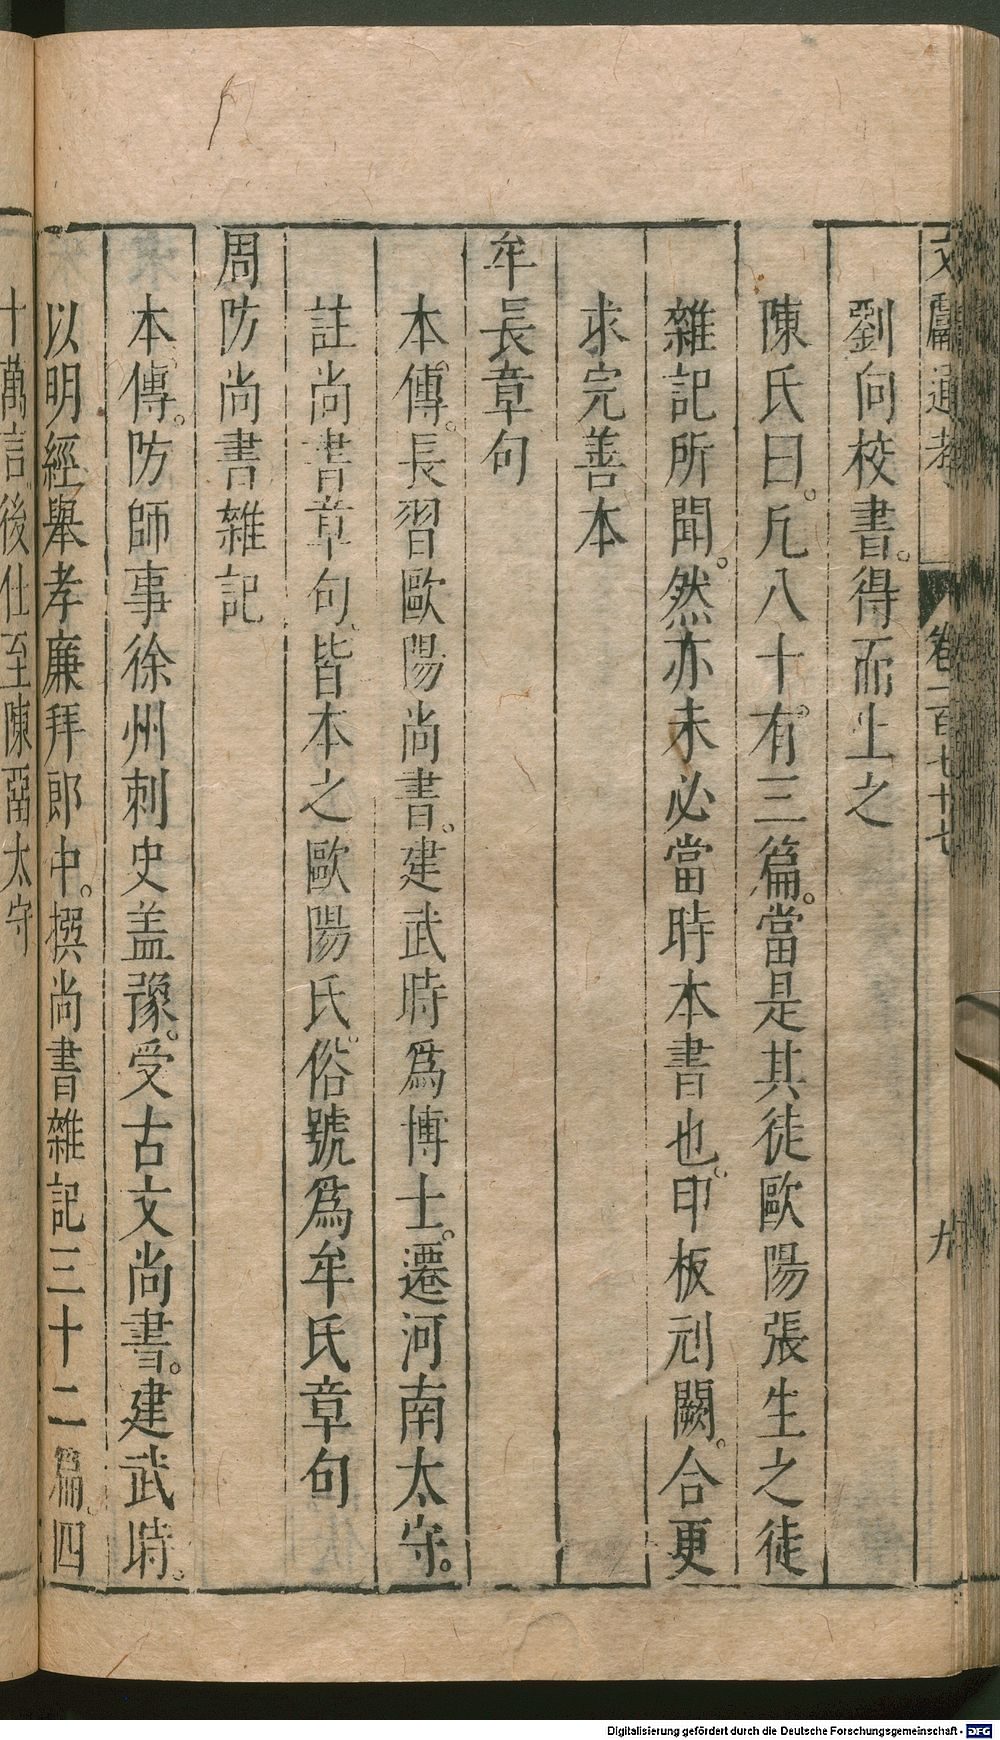 文獻通考 卷一百七十七 九
劉向校書。得而上之
陳氏曰。凡八十。有三篇。當是其徒歐陽張生之徒
雜記所聞。然亦未必當時本書也。印板刓闕。合更
求完善本
牟長章句
本傳。長習歐陽尚書。建武時爲博士。遷河南太守。
註尚書章句。皆本之歐陽氏。俗號爲牟氏章句
周防尚書雜記
本傳。防師事徐州刺史盖豫。受古文尚書。建武時。
以明經舉孝廉拜郎中。撰尚書雜記三十二篇。四
十萬言後仕至陳畱太守
Digitalisierung gefördert durch die Deutsche Forschungsgemeinschaft - DFG